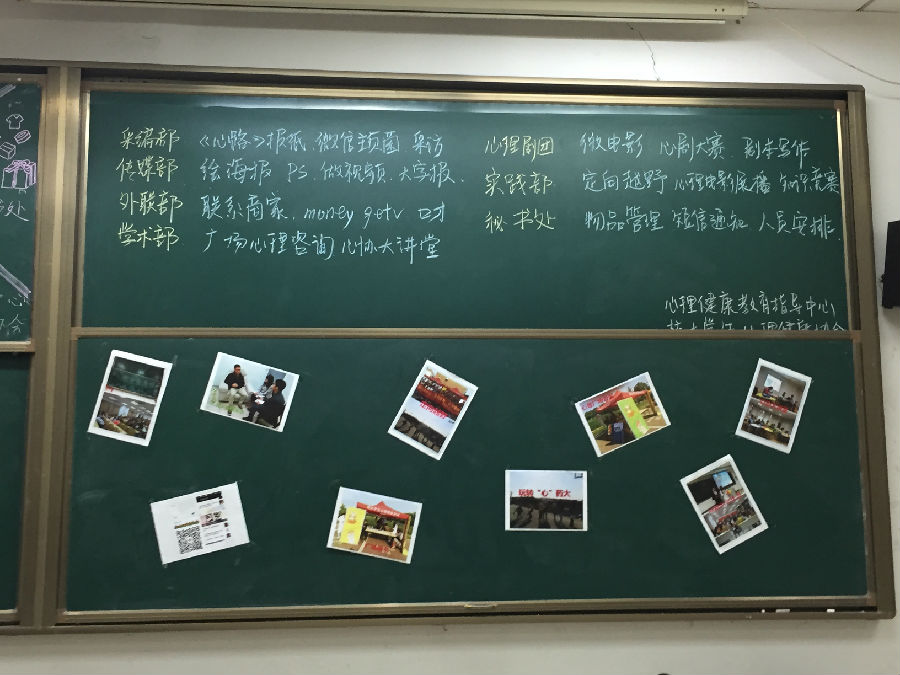 采编部 《心晴》报纸 微信推图 采访
传媒部 绘海报 PS 微视频 大字报
外联部 联系商家 money get√ 口才
学术部 广场心理咨询 心协大讲堂
心理剧团 微电影 心剧大赛 剧本写作
实践部 定向越野 心理电影展播 知识竞赛
秘书处 物品管理 短信通知 人员安排
心理健康教育指导中心
处
心
会
玩转“心”药大